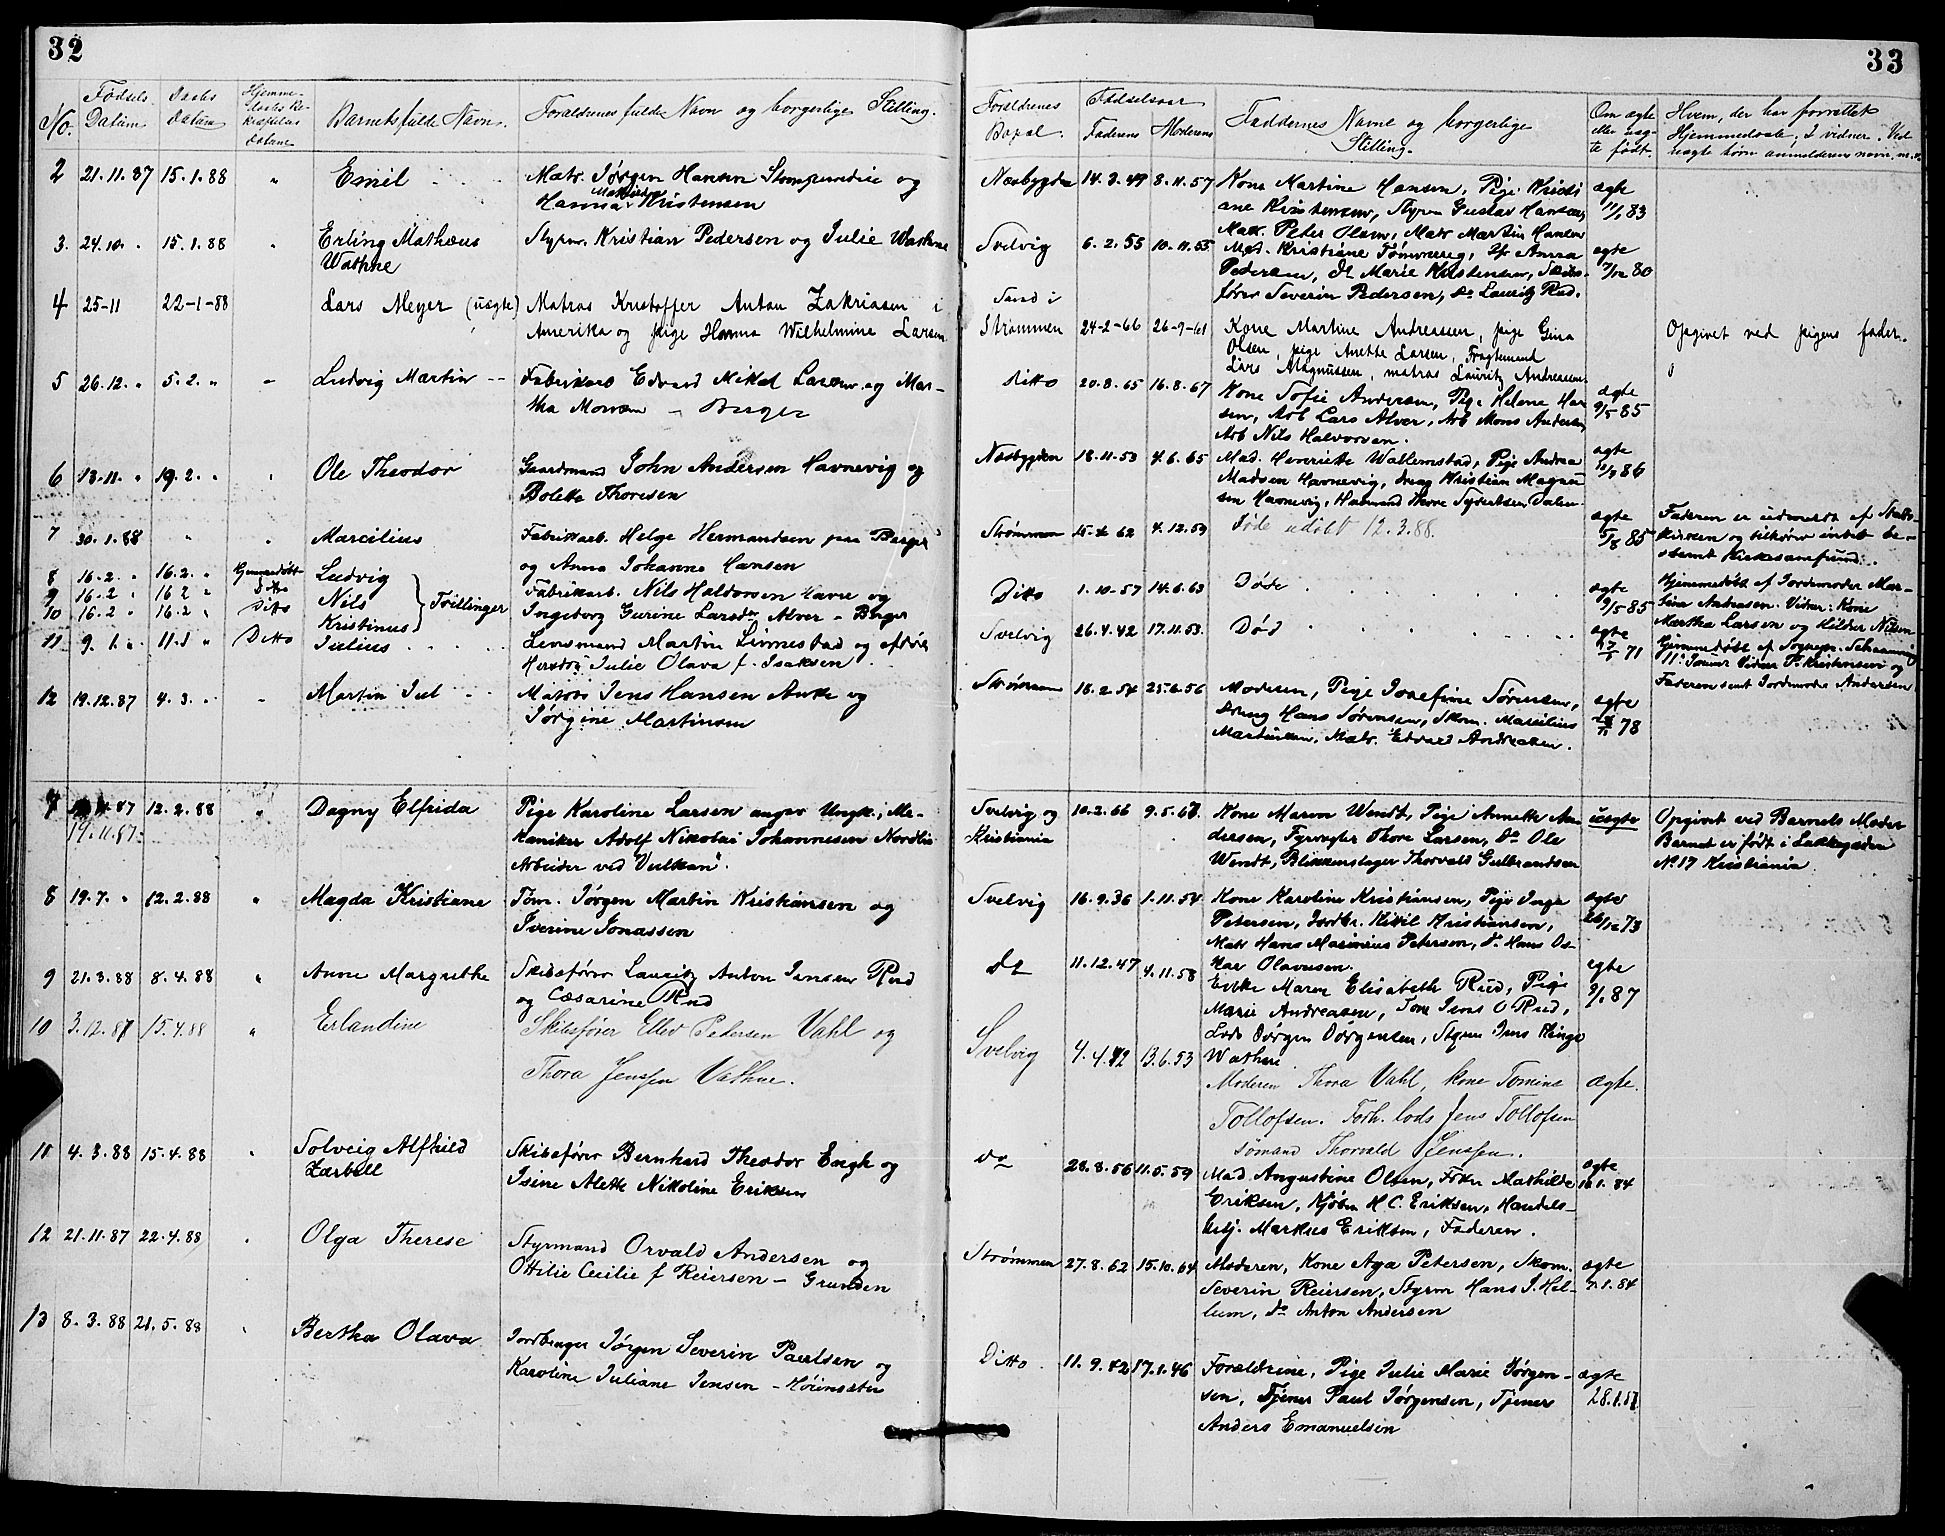 32
No.
Fødsels Datum
Daabs Datum
Barnets fulde Navn.
Forældrenes fulde Navn og borgerlige Stilling.
2 21.11.87 15.1.88 " Emil Matr. Jørgen Hansen og
Hanna Kristensen
3. 24.10 " 15.1.88 " Erling Mathæus Styrm. Kristian Pedersen og Julie Wathne
Wathne
4 25-11 22-1-88 Lars Meyer (uægte) Matros Kristoffer Anton Zakriasen i
Amerika og pige Hanna Wilhelmine Larsen
5 26.12. " 5.2. " " Ludvig Martin Fabrikarb Edvard Mikal Larsen og Mar-
tha Monsen - Berger
6 13.11. " 19.2. " " Ole Theodor Gaardmand John Andersen Havnevig og
Bolette Thoresen
7 30.1.88 " " Marcilius Fabrikarb. Helge Hermandsen paa Berger
og Anna Johanne Hansen
8 16.2. " 16.2. " Hjemmedøbt Ludvig Fabrikarb. Nils Haldorsen Havre og
9 16.2 " 16.2 " Ditto Nils } Trillinger
10 16.2 " 16.2 " Ditto Kristinus Ingeborg Gurine Larsdr. Alver - Berger
11 9.1. " 11.1 " Ditto Julius Lensmand Martin Linnestad og
Julie Olava f. Isaksen
12 19.12.87 4.3. " " Martin Jul Matros Jens Hansen Anke og
Jørgine Martinsen
7 12.2.88 " Dagny Elfrida Pige Karoline Larsen angiv Ungk., Me-
19.11.87. kaniker Adolf Nikolai Johannesen Nordlie
Arbeider ved "Vulkan".
8 19.7. " 12.2.88 " Magda Kristiane Tøm. Jørgen Martin Kristiansen og
Iverine Jonassen
9 21.3.88 8.4.88 " Anne Margrethe Skibsfører Lauritz Anton Jensen Rud
og Cæsarine Rud
10 3.12.87 15.4.88 " Erlandine Skibsfører Ellev Pedersen Vahl og
Thora Jenssen Vathne.
11 4.3.88 15.4.88 " Solveig Alfhild Skibsfører Bernhard Theodor Engh og
Zarbell Isine Alette Nikoline Eriksen
12 21.11.87 22.4.88 " Olga Therese Styrmand Orvald Andersen og
Ottilie Cecilie f Reiersen - Grunden
13 8.3.88 21.5.88 " Bertha Olava Jordbruger Jørgen Severin Paulsen og
Karoline Juliane Jensen - Höiensæter
33
Forældrenes Bopæl.
Fødselsaar
Faderens Moderens
Faddernes Navne og borgerlige
Stilling.
Om ægte
eller uæg-
te født.
Hvem, der har forrettet
Hjemmedaab, 2 vidner. Ved
uægte børn anmelderens navn
Næsbygden 14.3.49 8.11.57 Kone Martine Hansen, Pige Kristi
ane Kristensen, Styrm Gustav Hansen, ægte
Matr. Peter Olsen, Matr Martin Hansen 11/1 83
Svelvig 6.2.55 10.11.55 Mad. Kristiane Tømmereg, Anna ægte
Pedersen, Do Marie Kristensen, Skibs- 7/12 80
fører Severin Pedersen, Do Lauritz Rud.
Sand i
Strømmen 24-2-66 26-9-61 Kone Martine Andreassen, pige Gina Opgivet ved pigens fader.
Olsen, pige Anette Larsen, Fragtemand
Lars Magnussen, matros Lauritz Andreasen.
Ditto 20.8.65 16.8.67 Kone Sofie Andersen, Pige Helene Han ægte
sen, Arb Lars Alver, Arb Mons Andersen 9/5 85
Arb Nils Halvorsen.
Næsbygden 18.11.53 4.6.65 Mad. Henriette Wallemstad, Pige Andrea ægte
Madsen Havnevig, Dreng Kristian Magnu- 86
sen Havnevig, Thore Syvertsen Dalen
Strømmen 15.4.62 4.12.59 Døde udøbt 12.3.88. ægte Faderen er udmeldt af Stats-
5/8 85 kirken og tilhører intet be-
stemt Kirkesamfund.
Ditto 1.10.57 14.6.63 Døde ægte Hjemmedøbt af Jordemoder Mar-
9/5 85 tina Andreasen. Vidner: Kone
Svelvig 26.4.42 17.11.53. Død ægte Martha Larsen og Hilder Nilsen
71 Hjemmedøbt af Sognepr. Schanning
11 Januar Vidner P. Kristensen og
Faderen samt Jordemoder Andersen
Strømmen 18.2.54 25.6.56 Moderen, Pige Josefine Sørensen, ægte
Dreng Hans Sørensen, Skom. Marcilius 78
Martinsen, Matr. Edvard Andreasen.
Svelvig og 10.2.66 9.5.67 Kone Maren Wendt, Pige Annette An uægte Opgivet ved Barnets Moder
Kristiania dersen, Fyrvogter Thore Larsen, Do Ole Barnet er født i Lakkegaden
Wendt, Blikkenslager Thorvald Gulbrandsen No. 17 Kristiania.
Svelvig 16.9.36 1.11.54 Kone Karoline Kristiansen, Pige Inga ægte
Petersen, Jordbr. Kittil Kristiansen, 26/12 73
Matr Hans Marinius Petersen, Do Hans Os-
kar Olavesen.
Do 11.12.47 4.11.58 Enke Maren Elisabeth Rud, Pige ægte
Marie Andreasen, Tom Jens O Rud, 9/1 87
Lods Jørgen Jørgensen, Styrm Jens Klinge
Wathne.
Svelvig 4.4.42 13.6.53 Moderen Thora Vahl, kone Tomine ægte.
Tollofsen. Forh. lods Jens Tollofsen
sømand Thorvald Jenssen.
Do 28.8.56 11.5.59 Mad Angustine Olsen, Frkn Mathilde ægte
Eriksen, Kjøbm H.C. Eriksen, Handels- 18.1.84
betj. Markus Eriksen, Faderen.
Strømmen 27.8.62 15.10.64 Moderen, Kone Aga Petersen, Skom. ægte
Severin Reiersen, Styrm Hans J. Hel- 7.1.84
lum, Do Anton Andersen
Ditto 11.9.42 17.1.46 Forældrene, Pige Julie Marie Jørgen- ægte
sen, Tjener Paul Jørgensen, Tjener 28.1.
Anders Emanuelsen